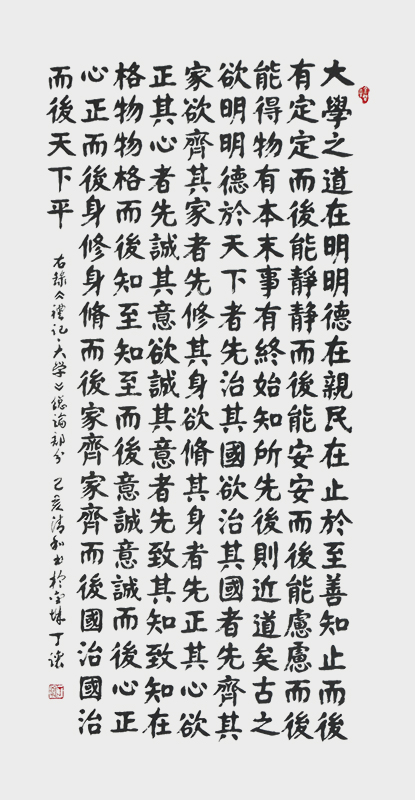 大學之道在明明德在親民在止於至善知止而後
有定定而後能靜靜而後能安安而後能慮慮而後
能得物有本末事有終始知所先後則近道矣古之
欲明明德於天下者先治其國欲治其國者先齊其
家欲齊其家者先修其身欲脩其身者先正其心欲
正其心者先誠其意欲誠其意者先致其知致知在
格物物格而後知至知至而後意誠意誠而後心正
心正而後身修身脩而後家齊家齊而後國治國治
而後天下平
右錄《禮記·大学》總論部分 己亥清和书於 丁